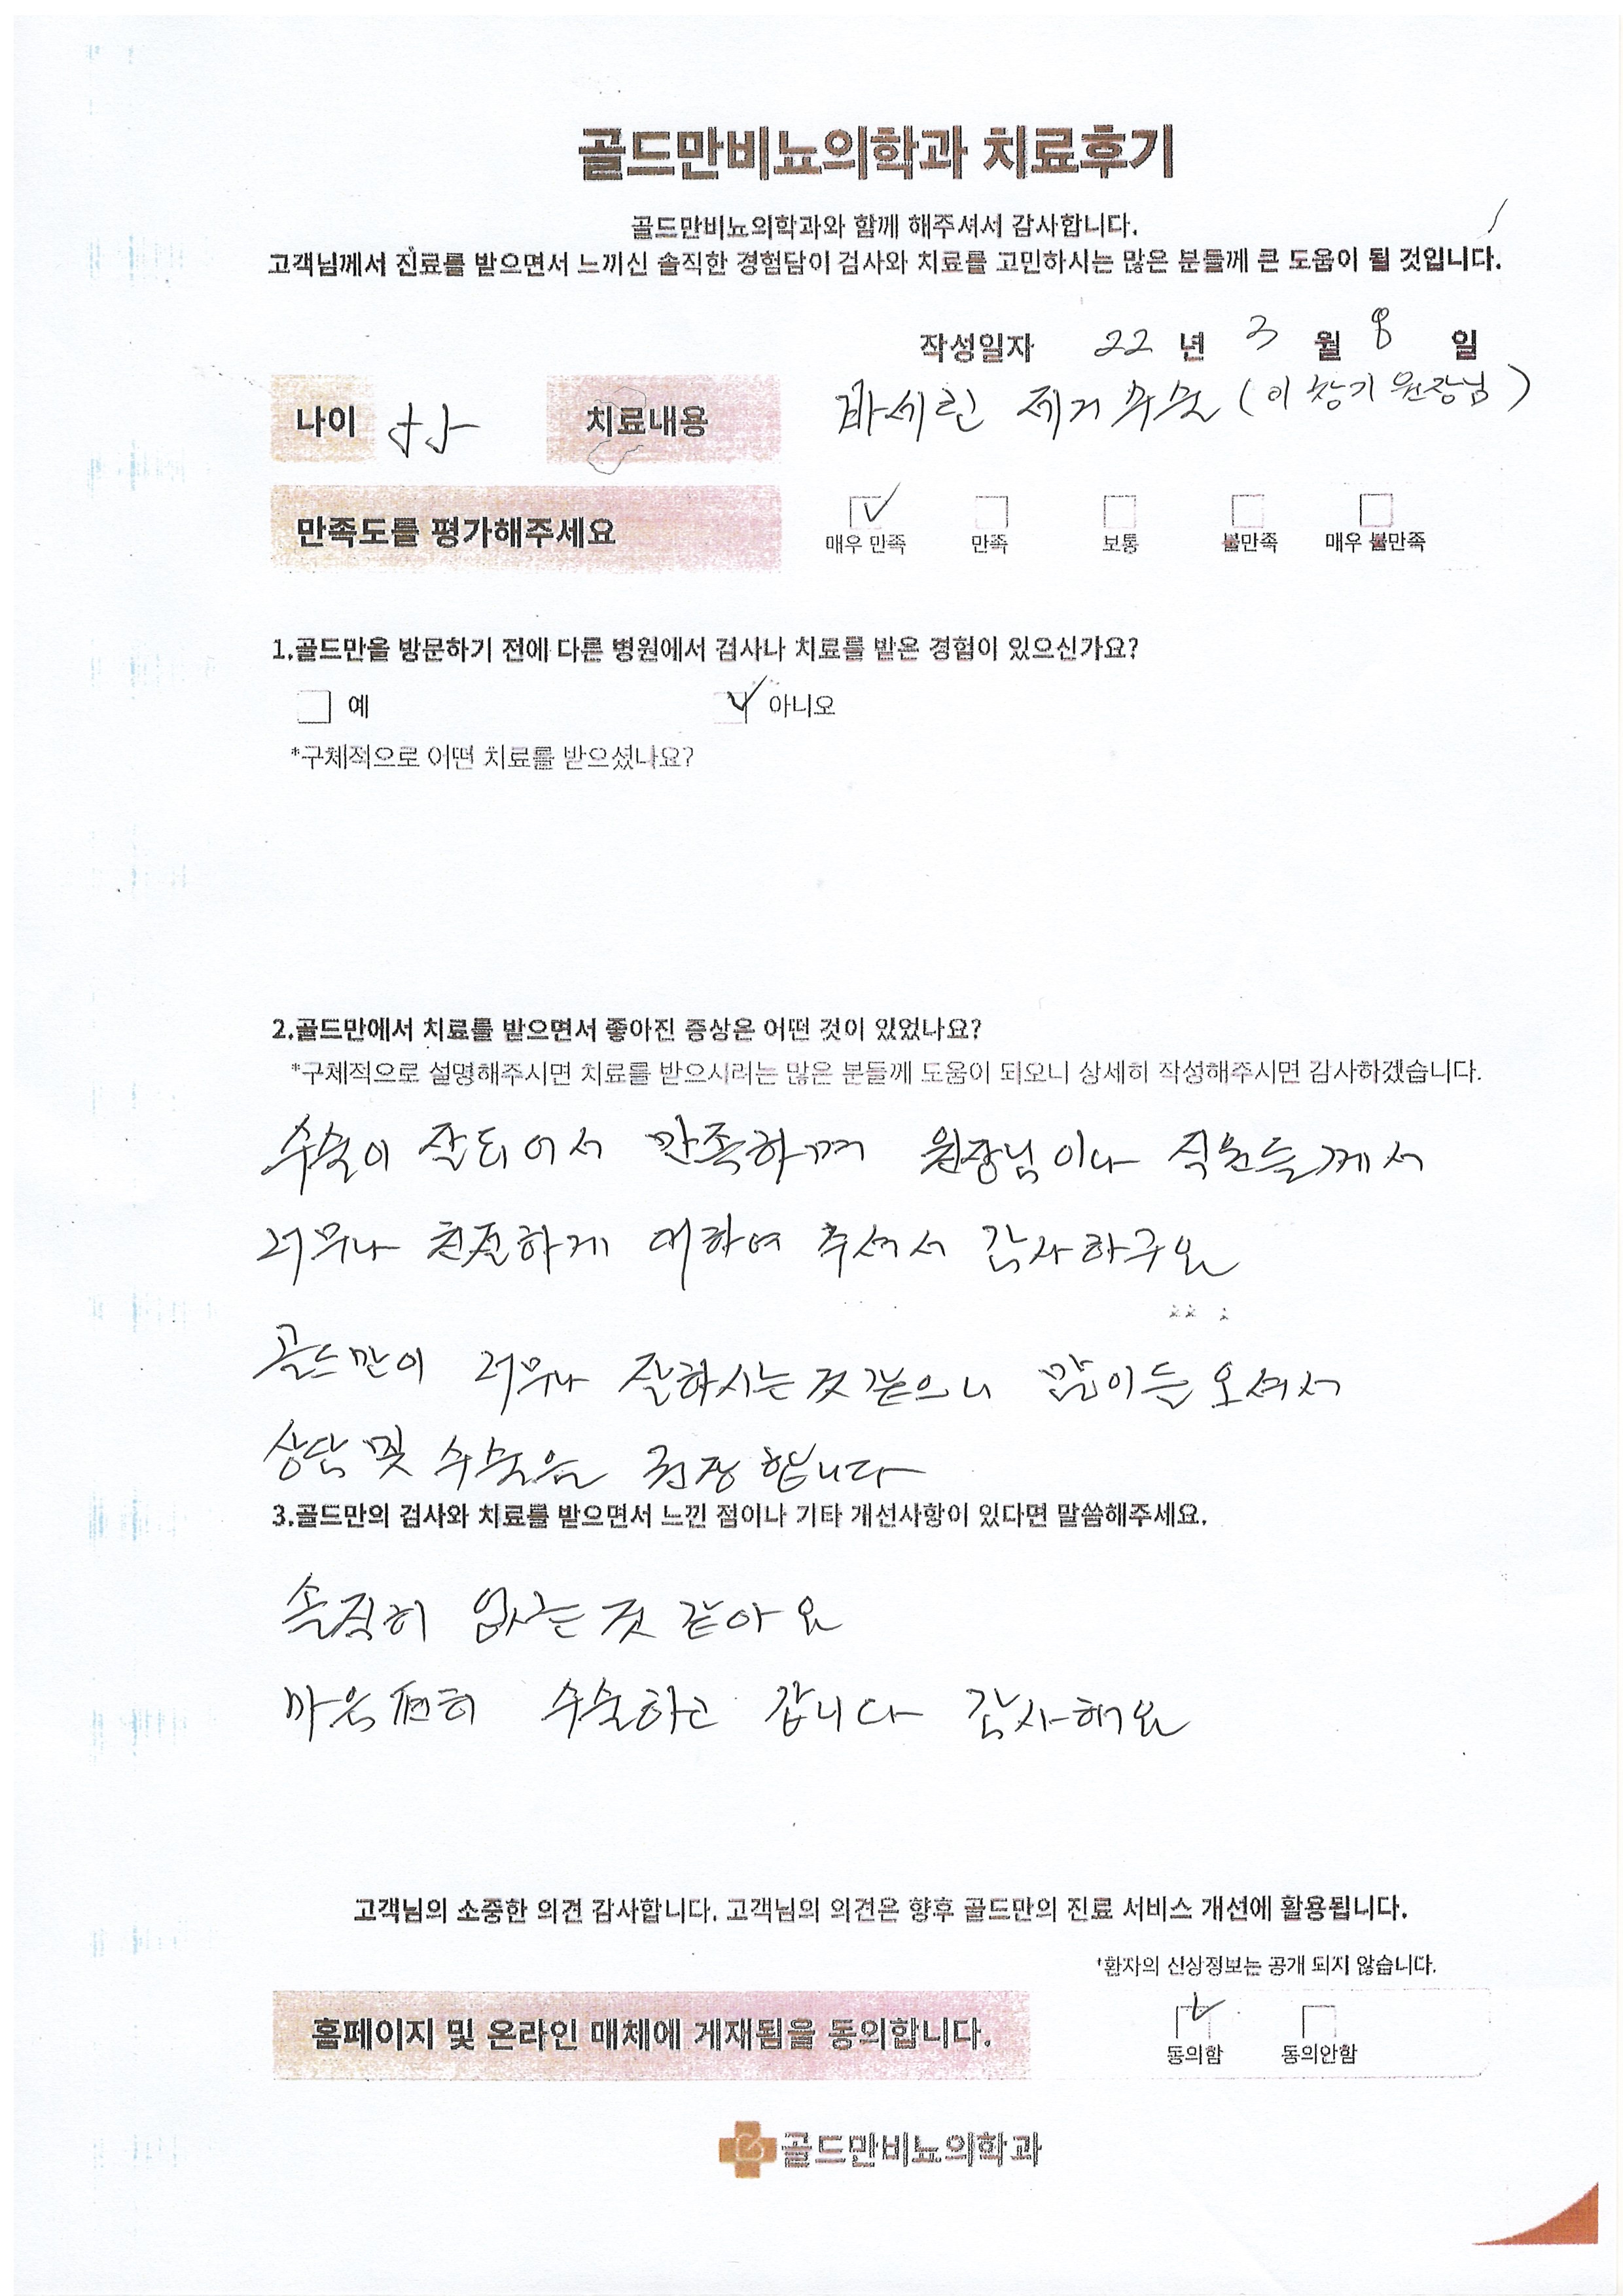 골드만비뇨의학과 치료후기
골드만비뇨의학과와 함께 해주셔서 감사합니다.
고객님께서 진료를 받으면서 느끼신 솔직한 경험담이 검사와 치료를 고민하시는 많은 분들께 큰 도움이 될 것입니다.
작성일자 22 년 3 월 8 일
나이 치료내용 바세린 제거 수술 (이창기 원장님)
만족도를 평가해주세요
매우 만족 만족 보통 불만족 매우 불만족
1.골드만을 방문하기 전에 다른 병원에서 검사나 치료를 받은 경험이 있으신가요?
예 아니오
*구체적으로 어떤 치료를 받으셨나요?
2.골드만에서 치료를 받으면서 좋아진 증상은 어떤 것이 있었나요?
*구체적으로 설명해주시면 치료를 받으시려는 많은 분들께 도움이 되오니 상세히 작성해주시면 감사하겠습니다.
수술이 잘되어서 만족하며 원장님이나 직원들께서
너무나 친절하게 대하여 주셔서 감사하구요
골드만이 너무나 잘하시는것 같으니 많이들 오셔서
상담 및 수술을 권장합니다
3.골드만의 검사와 치료를 받으면서 느낀 점이나 기타 개선사항이 있다면 말씀해주세요.
솔직히 없는것 같아요
마음편히 수술하고 갑니다 감사해요
고객님의 소중한 의견 감사합니다. 고객님의 의견은 향후 골드만의 진료 서비스 개선에 활용됩니다.
*환자의 신상정보는 공개 되지 않습니다.
홈페이지 및 온라인 매체에 게재됨을 동의합니다.
동의함 동의안함
골드만비뇨의학과